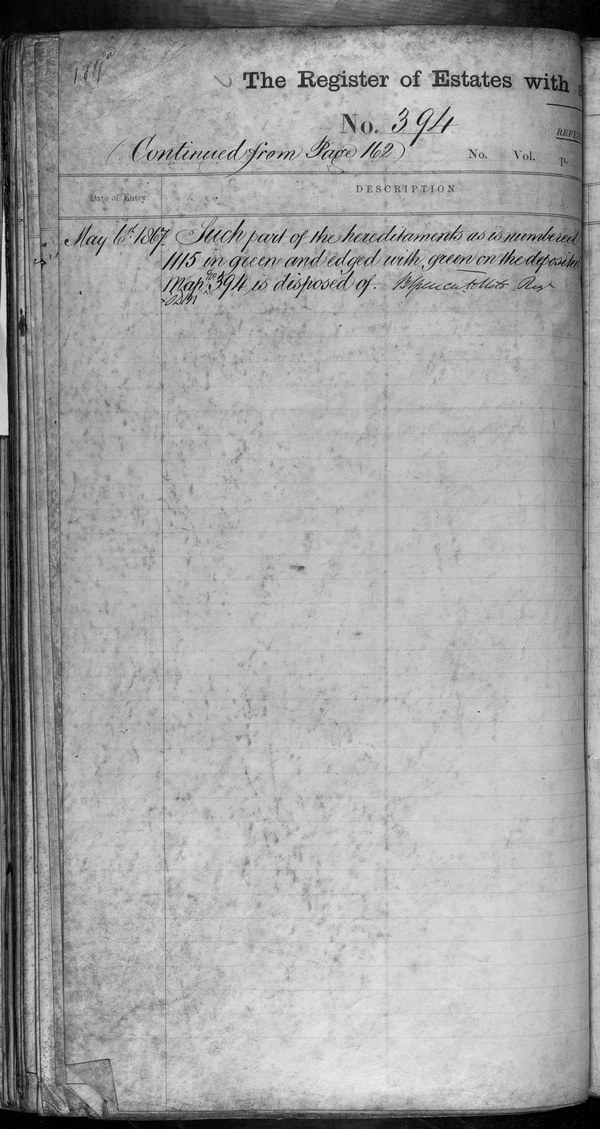 The Register of Estates with
No. 394
(Continued from Page 162.) No. Vol. p.
Date of Entry DESCRIPTION
May 6th 1867 Such part of the hereditaments as is numbered
1115 in green and edged with green on the deposited
Map 394 is disposed of.